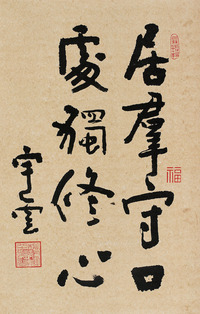 居羣守口
處獨修心
宇雲
福